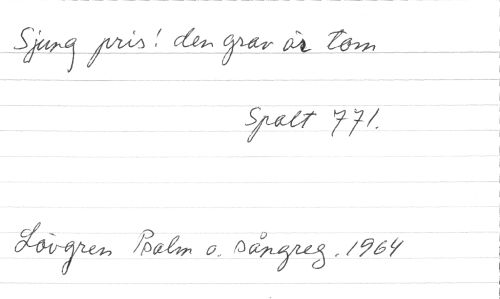 Sjung pris! den grav är tom
Spalt 771.
Lövgren Psalm o. sångreg. 1964